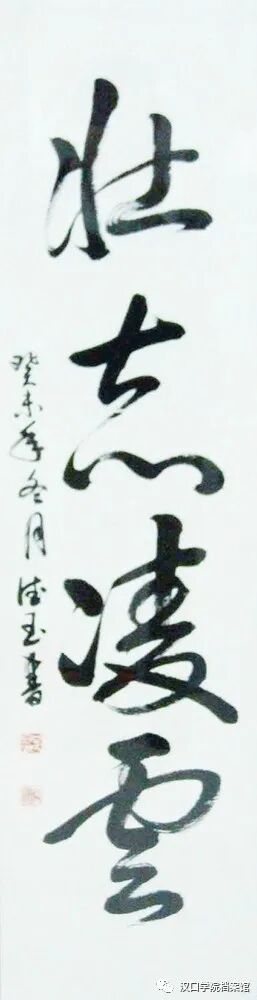 壮志凌雲
癸未年冬月 德玉書
汉口学院档案馆